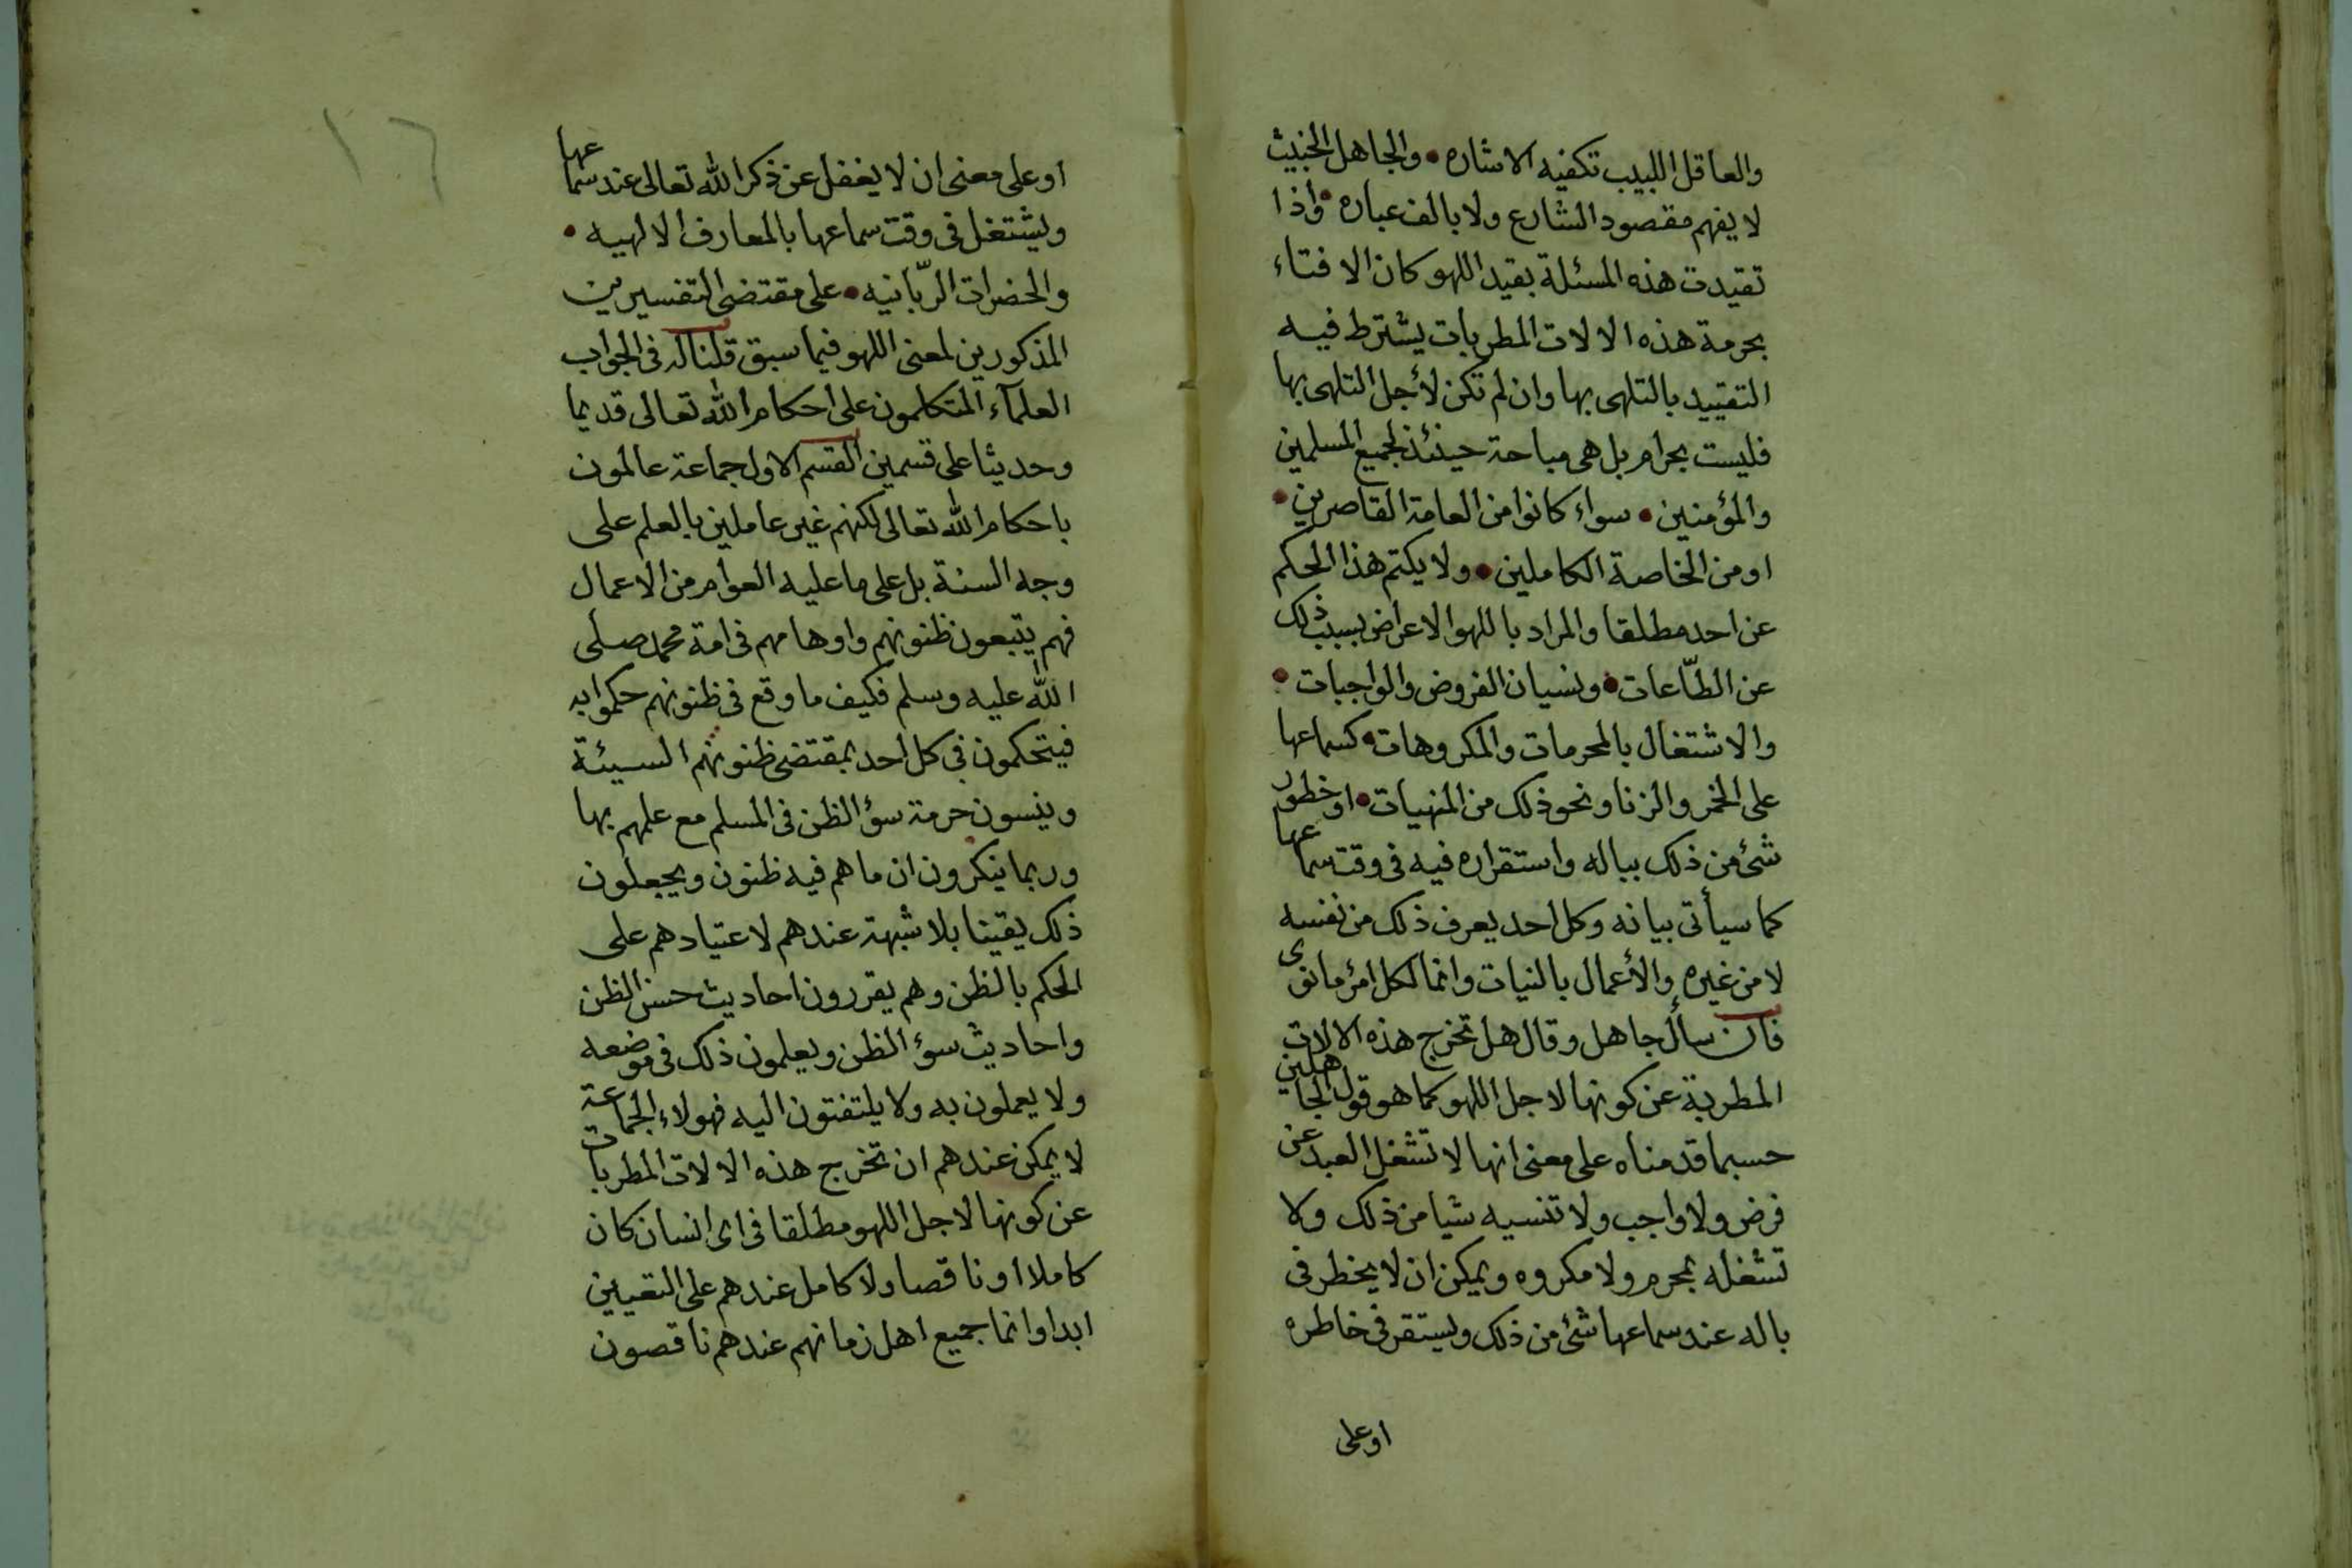 والعاقل اللبيب تكفيه الاشاره • والجاهل الخبيث
لا يفهم مقصود الشارع ولا بالف عباره • واذا
تقيدت هذه المسئلة بقيد اللهو كان الافتاء
بحرمة هذه الالات المطربات يشترط فيه
التقييد بالتلهى بها وان لم تكن لأجل التلهى بها
فليست بحرام بل هى مباحة حينئذ لجميع المسلمين
والمؤمنين • سواء كانوا من العامة القاصرين •
او من الخاصة الكاملين • ولا يكتم هذا الحكم
عن احد مطلقا والمراد باللهو الاعراض بسبب ذلك
عن الطّاعات • ونسيان الفروض والواجبات •
والاشتغال بالمحرمات والمكروهات • كسماعها
على الخمر والزنا ونحو ذلك من المنهيات • او خطور
شئ من ذلك بباله واستقراره فيه فى وقت سماعها
كما سيأتى بيانه وكل احد يعرف ذلك من نفسه
لا من غيره والأعمال بالنيات وانما لكل امرئ ما نوى
فان سأل جاهل وقال هل تخرج هذه الالات
المطربة عن كونها لاجل اللهو كما هو قول الجاهلين
حسبما قدمناه على معنى انها لا تشغل العبد عن
فرض ولا واجب ولا تنسيه شيا من ذلك ولا
تشغله بمحرم ولا مكروه ويمكن ان لا يخطر فى
باله عند سماعها شئ من ذلك ويستقر فى خاطره
او على
١٦
او على معنى ان لا يغفل عن ذكر الله تعالى عند سماعها
ويشتغل فى وقت سماعها بالمعارف الالهيه •
والحضرات الربّانيه • على مقتضى التفسيرين
المذكورين لمعنى اللهو فيما سبق قلنا له فى الجواب
العلمآء المتكلمون على احكام الله تعالى قديما
وحديثا على قسمين القسم الاول جماعة عالمون
باحكام الله تعالى لكنهم غير عاملين بالعلم على
وجه السنة بل على ما عليه العوام من الاعمال
فهم يتبعون ظنونهم واوهامهم فى امة محمد صلى
الله عليه وسلم فكيف ما وقع فى ظنونهم حكموا به
فيتحكمون فى كل احد بمقتضى ظنونهم السيئة
وينسون حرمة سؤ الظن فى المسلم مع علمهم بها
وربما ينكرون ان ما هم فيه ظنون ويجعلون
ذلك يقينا بلا شبهة عندهم لاعتيادهم على
الحكم بالظن وهم يقررون احاديث حسن الظن
واحاديث سؤ الظن ويعلمون ذلك فى موضعه
ولا يعملون به ولا يلتفتون اليه فهولاء الجماعة
لا يمكن عندهم ان تخرج هذه الالات المطربات
عن كونها لاجل اللهو مطلقا فى اى انسان كان
كاملا او ناقصا ولا كامل عندهم على التعيين
ابدا وانما جميع اهل زمانهم عندهم ناقصون